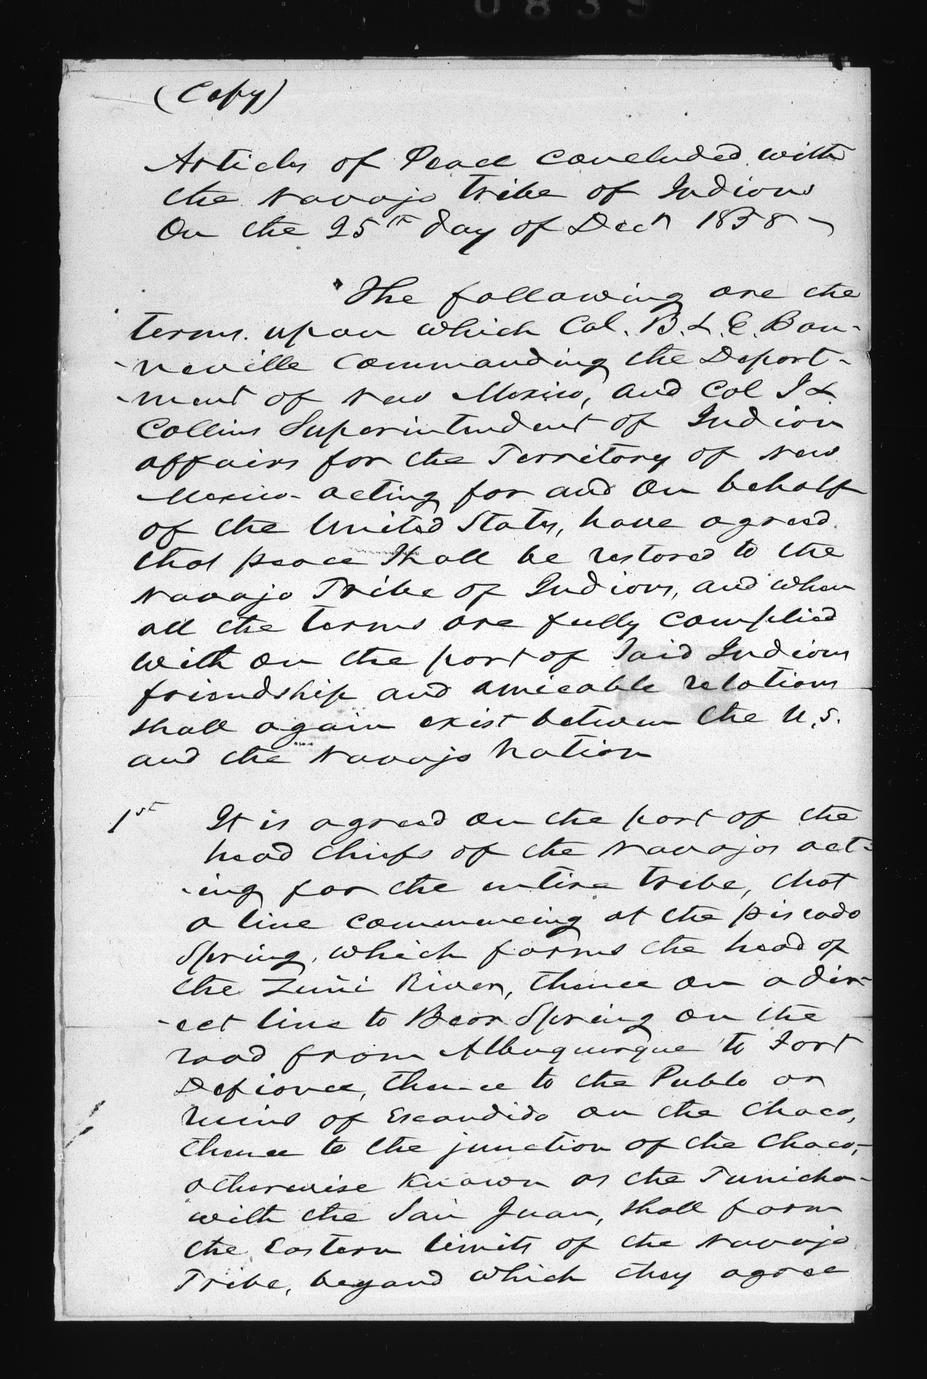 0839
(Copy)
Articles of Peace concluded with
the Navajo tribe of Indians
On the 25th day of Decr 1858
The following are the
terms upon which Col. B. L. E. Bon-
-neville Commanding the Depart-
-ment of New Mexico, and Col J L
Collins Superintendent of Indian
affairs for the Territory of New
Mexico acting for and on behalf
of the United States, have agreed
that peace Shall be restored to the
Navajo Tribe of Indians, and when
all the terms are fully complied
with on the part of Said Indians
friendship and amicable relations
shall again exist between the U.S.
and the Navajo Nation
1st It is agreed on the part of the
head Chiefs of the Navajos act-
-ing for the entire tribe, that
a line commencing at the piscado
Spring, which forms the head of
the Zuñi River, thence on a dir-
-ect line to Bear Spring on the
road from Albuquerque to Fort
Defiance, thence to the Pueblo or
ruins of Escondido on the Chaco,
thence to the junction of the Chaco,
otherwise Known as the Tunicha
with the San Juan, shall form
the Eastern limits of the Navajo
Tribe, beyond which they agree